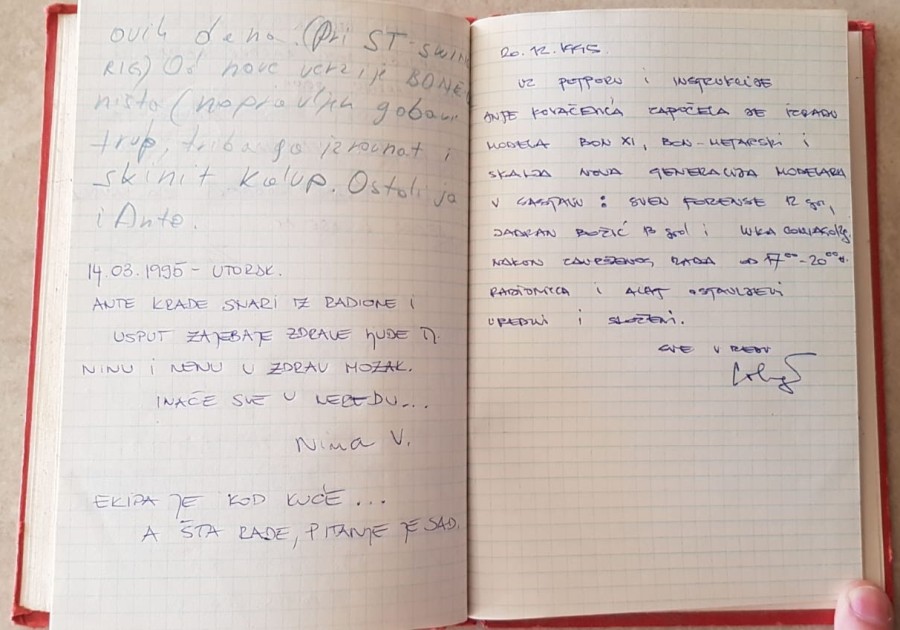 ovih dana. (Pri ST-SWIN
RIG) Od nove verzije BONE
ništa (napravljen gobav
trup, triba ga izrovnat i
skinit kalup. Ostali ja
i Ante.
14.03.1995 - UTORAK.
ANTE KRADE STVARI IZ RADIONE I
USPUT ZAJEBAJE ZDRAVE LJUDE TJ.
NINU I NENU U ZDRAV MOZAK.
INAČE SVE U NEREDU...
Nina V.
EKIPA JE KOD KUĆE...
A ŠTA RADE, PITANJE JE SAD.
20.12.1995.
UZ POTPORU I INSTRUKCIJE
ANTE KOVAČEVIĆA ZAPOČELA JE IZRADA
MODELA BON XI, BON-METARSKI I
SKALJA NOVA GENERACIJA MODELARA
U SASTAVU: SVEN FORENSE 12 god,
JADRAN BOŽIĆ 13 god i LUKA
NAKON ZAVRŠENOG RADA OD 17⁰⁰-20⁰⁰h.
RADIONICA I ALAT OSTAVLJENI
UREDNI I SLOŽENI.
SVE U REDU